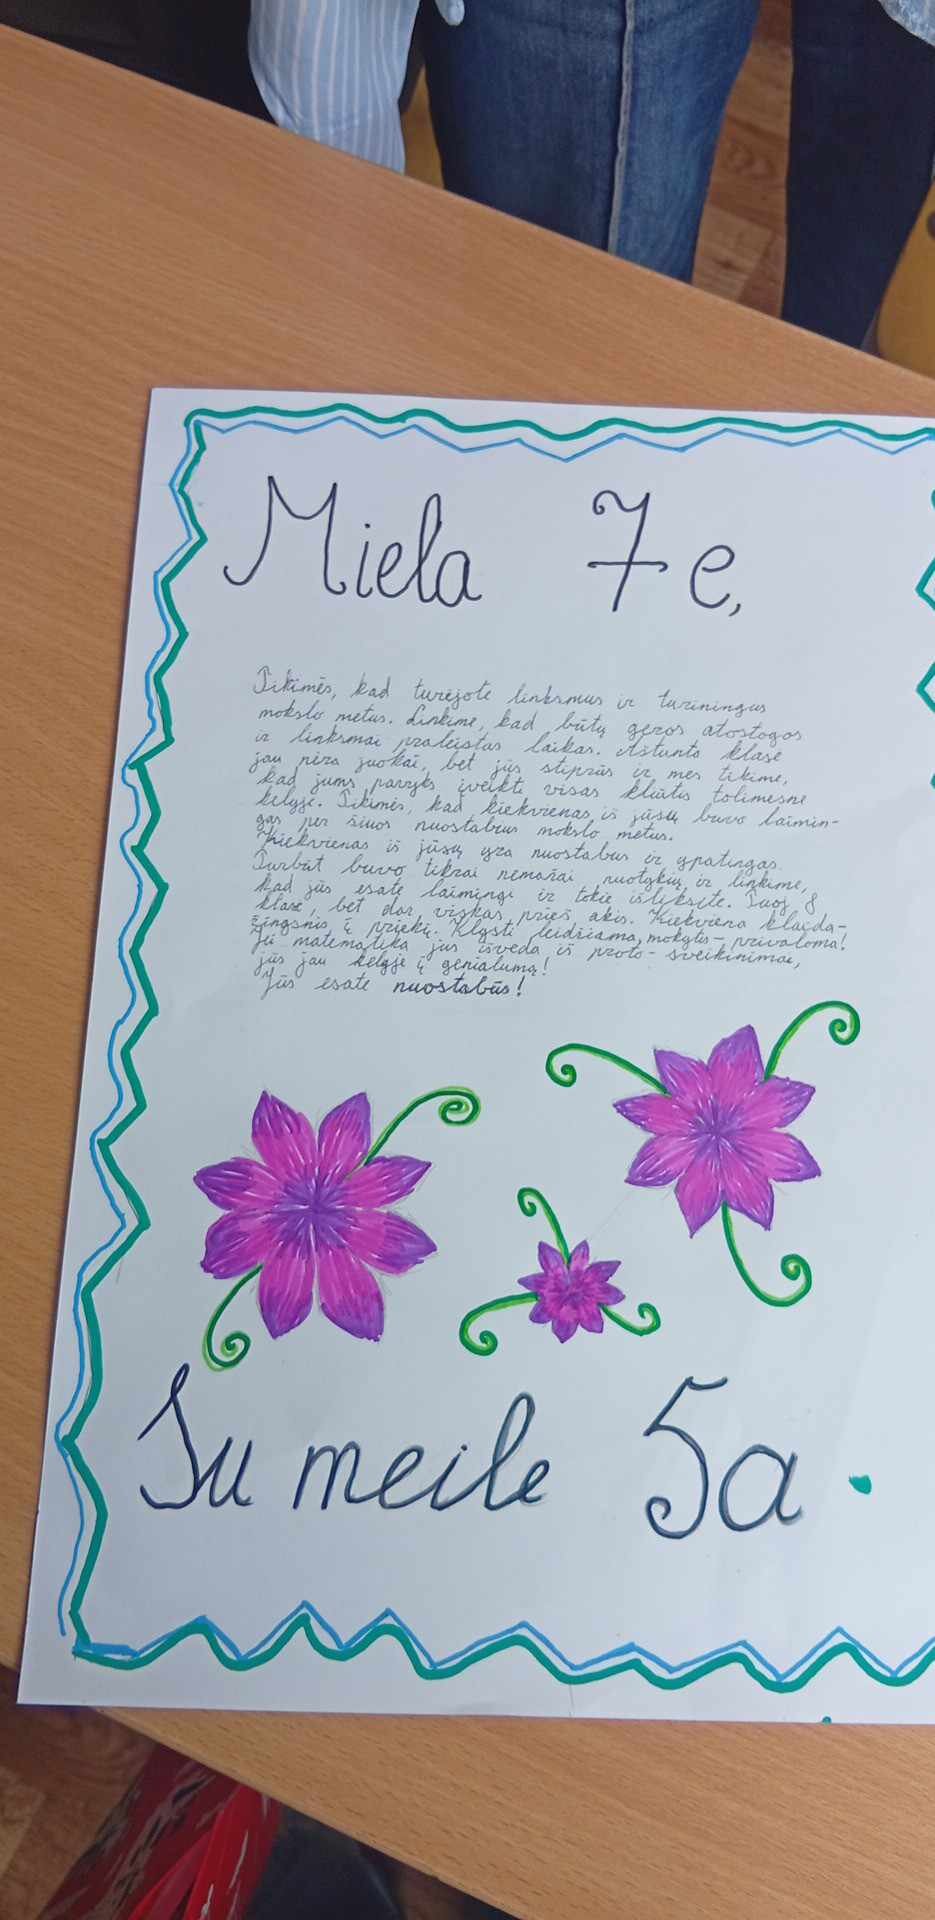 Miela 7e,
Tikimės, kad turėjote linksmus ir turiningus
mokslo metus. Linkime, kad būtų geros atostogos
ir linksmai praleistas laikas. Aštunta klasė
jau nėra juokai, bet jūs stiprūs ir mes tikime,
kad jums pavyks įveikti visas kliūtis tolimesnė
kelyje. Tikimės, kad kiekvienas iš jūsų buvo laimin-
gas per šiuos nuostabius mokslo metus.
Kiekvienas iš jūsų yra nuostabus ir ypatingas.
Turbūt buvo tikrai nemažai nuotykių ir linkime,
kad jūs esate laimingi ir tokie išliksite. Tuoj 8
klasė, bet dar viskas prieš akis. Kiekviena klaida-
žingsnis į priekį. Klysti leidžiama, mokytis - privaloma!
Jei matematika jus išveda iš proto - sveikinimai,
jūs jau kelyje į genialumą!
Jūs esate nuostabūs!
Su meile 5a